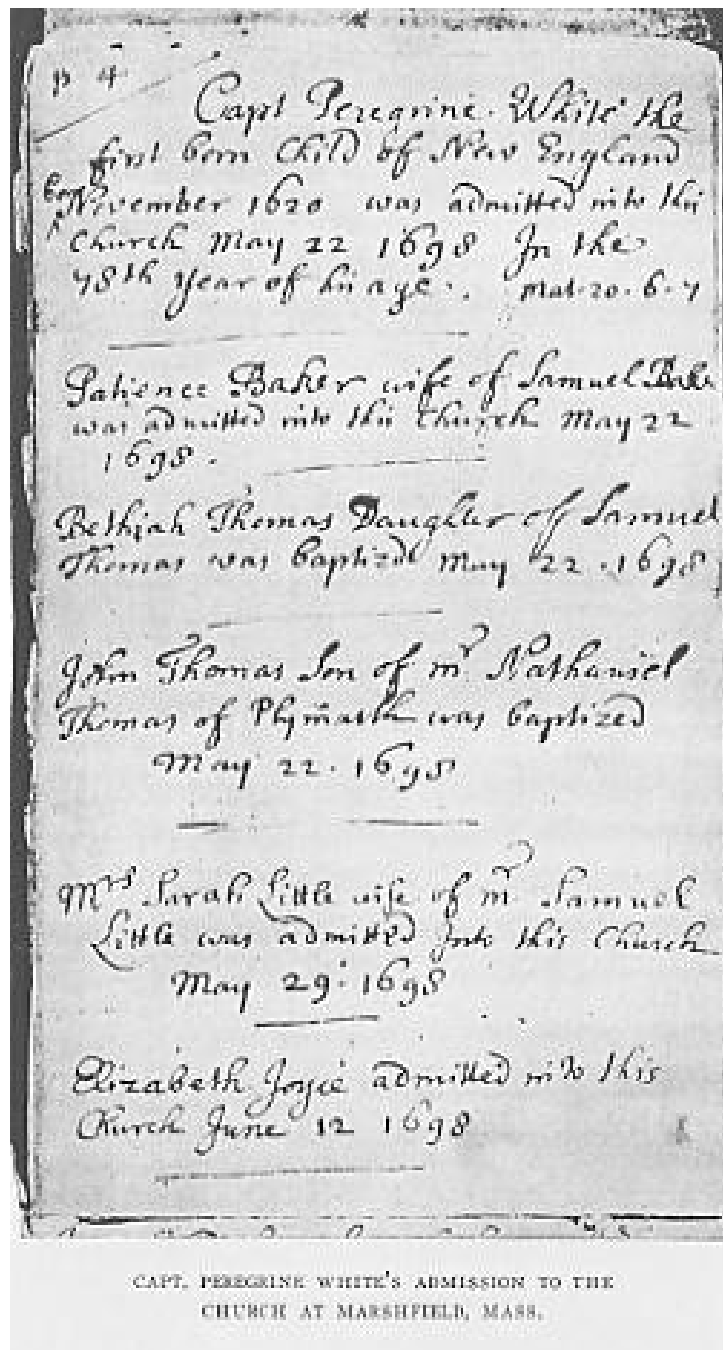 p 4
Capt Peregrine White the
first born Child of New England
Born November 1620 was admitted into this
Church May 22 1698 In the
78th Year of his age. Mat. 20. 6. 7
Patience Baker wife of Samuel Baker
was admitted into this Church May 22
1698.
Bethiah Thomas Daughter of Samuel
Thomas was baptized May 22. 1698
John Thomas Son of mr Nathaniel
Thomas of Plymouth was baptized
May 22. 1698
Mrs Sarah Little wife of mr Samuel
Little was admitted Into this Church
May 29. 1698
Elizabeth Joyce admitted into this
Church June 12 1698
CAPT. PEREGRINE WHITE'S ADMISSION TO THE
CHURCH AT MARSHFIELD, MASS.